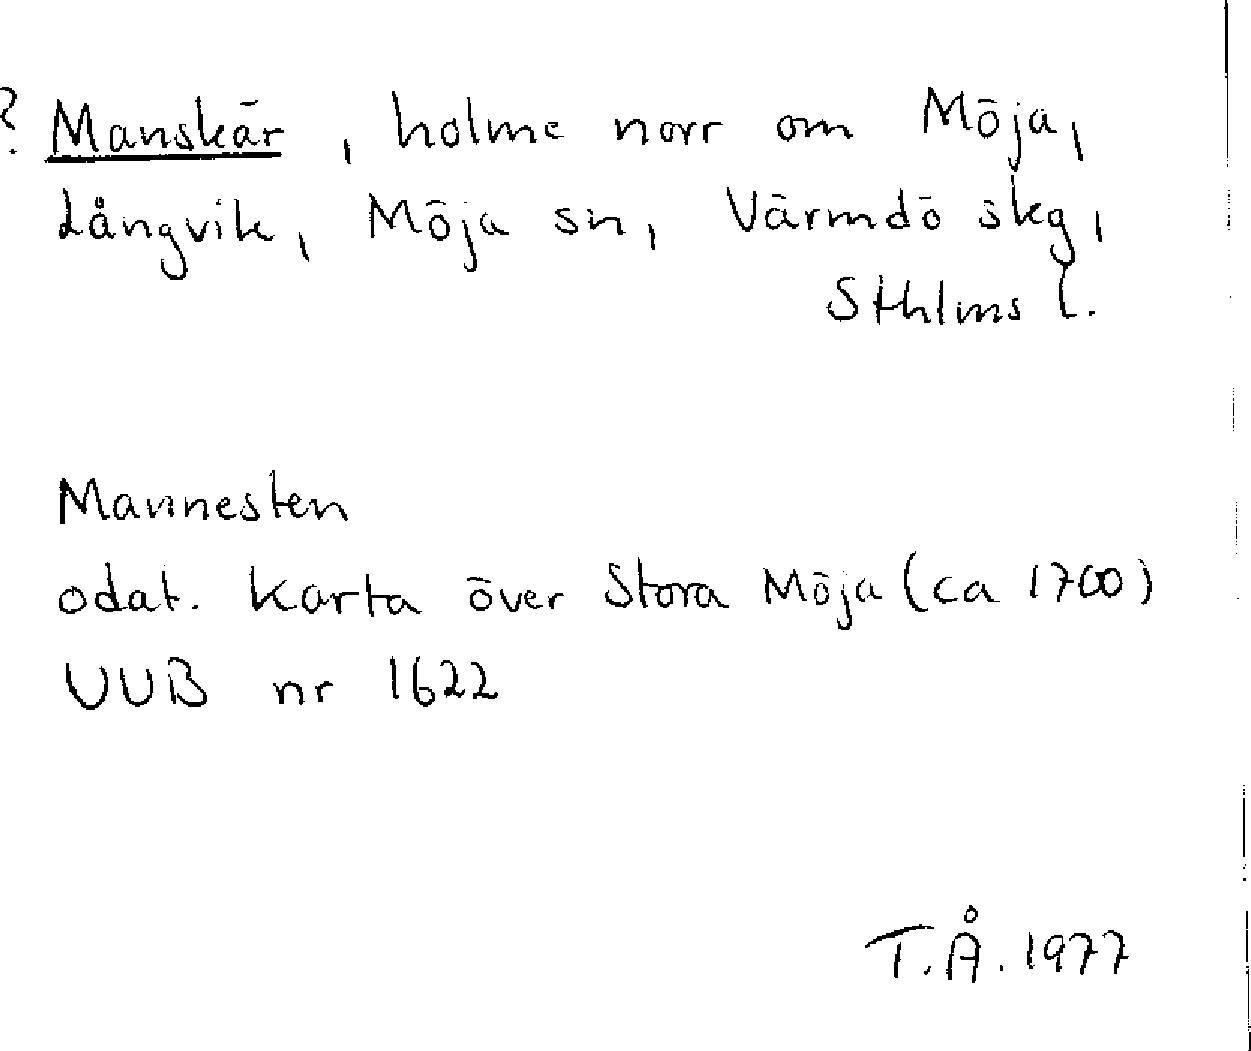 ? Manskär, holme norr om Möja,
Långvik, Möja sn, Värmdö skg,
Sthlms l.
Mannesten
odat. karta över Stora Möja (ca 1700)
UUB nr 1622
T.Å. 1977